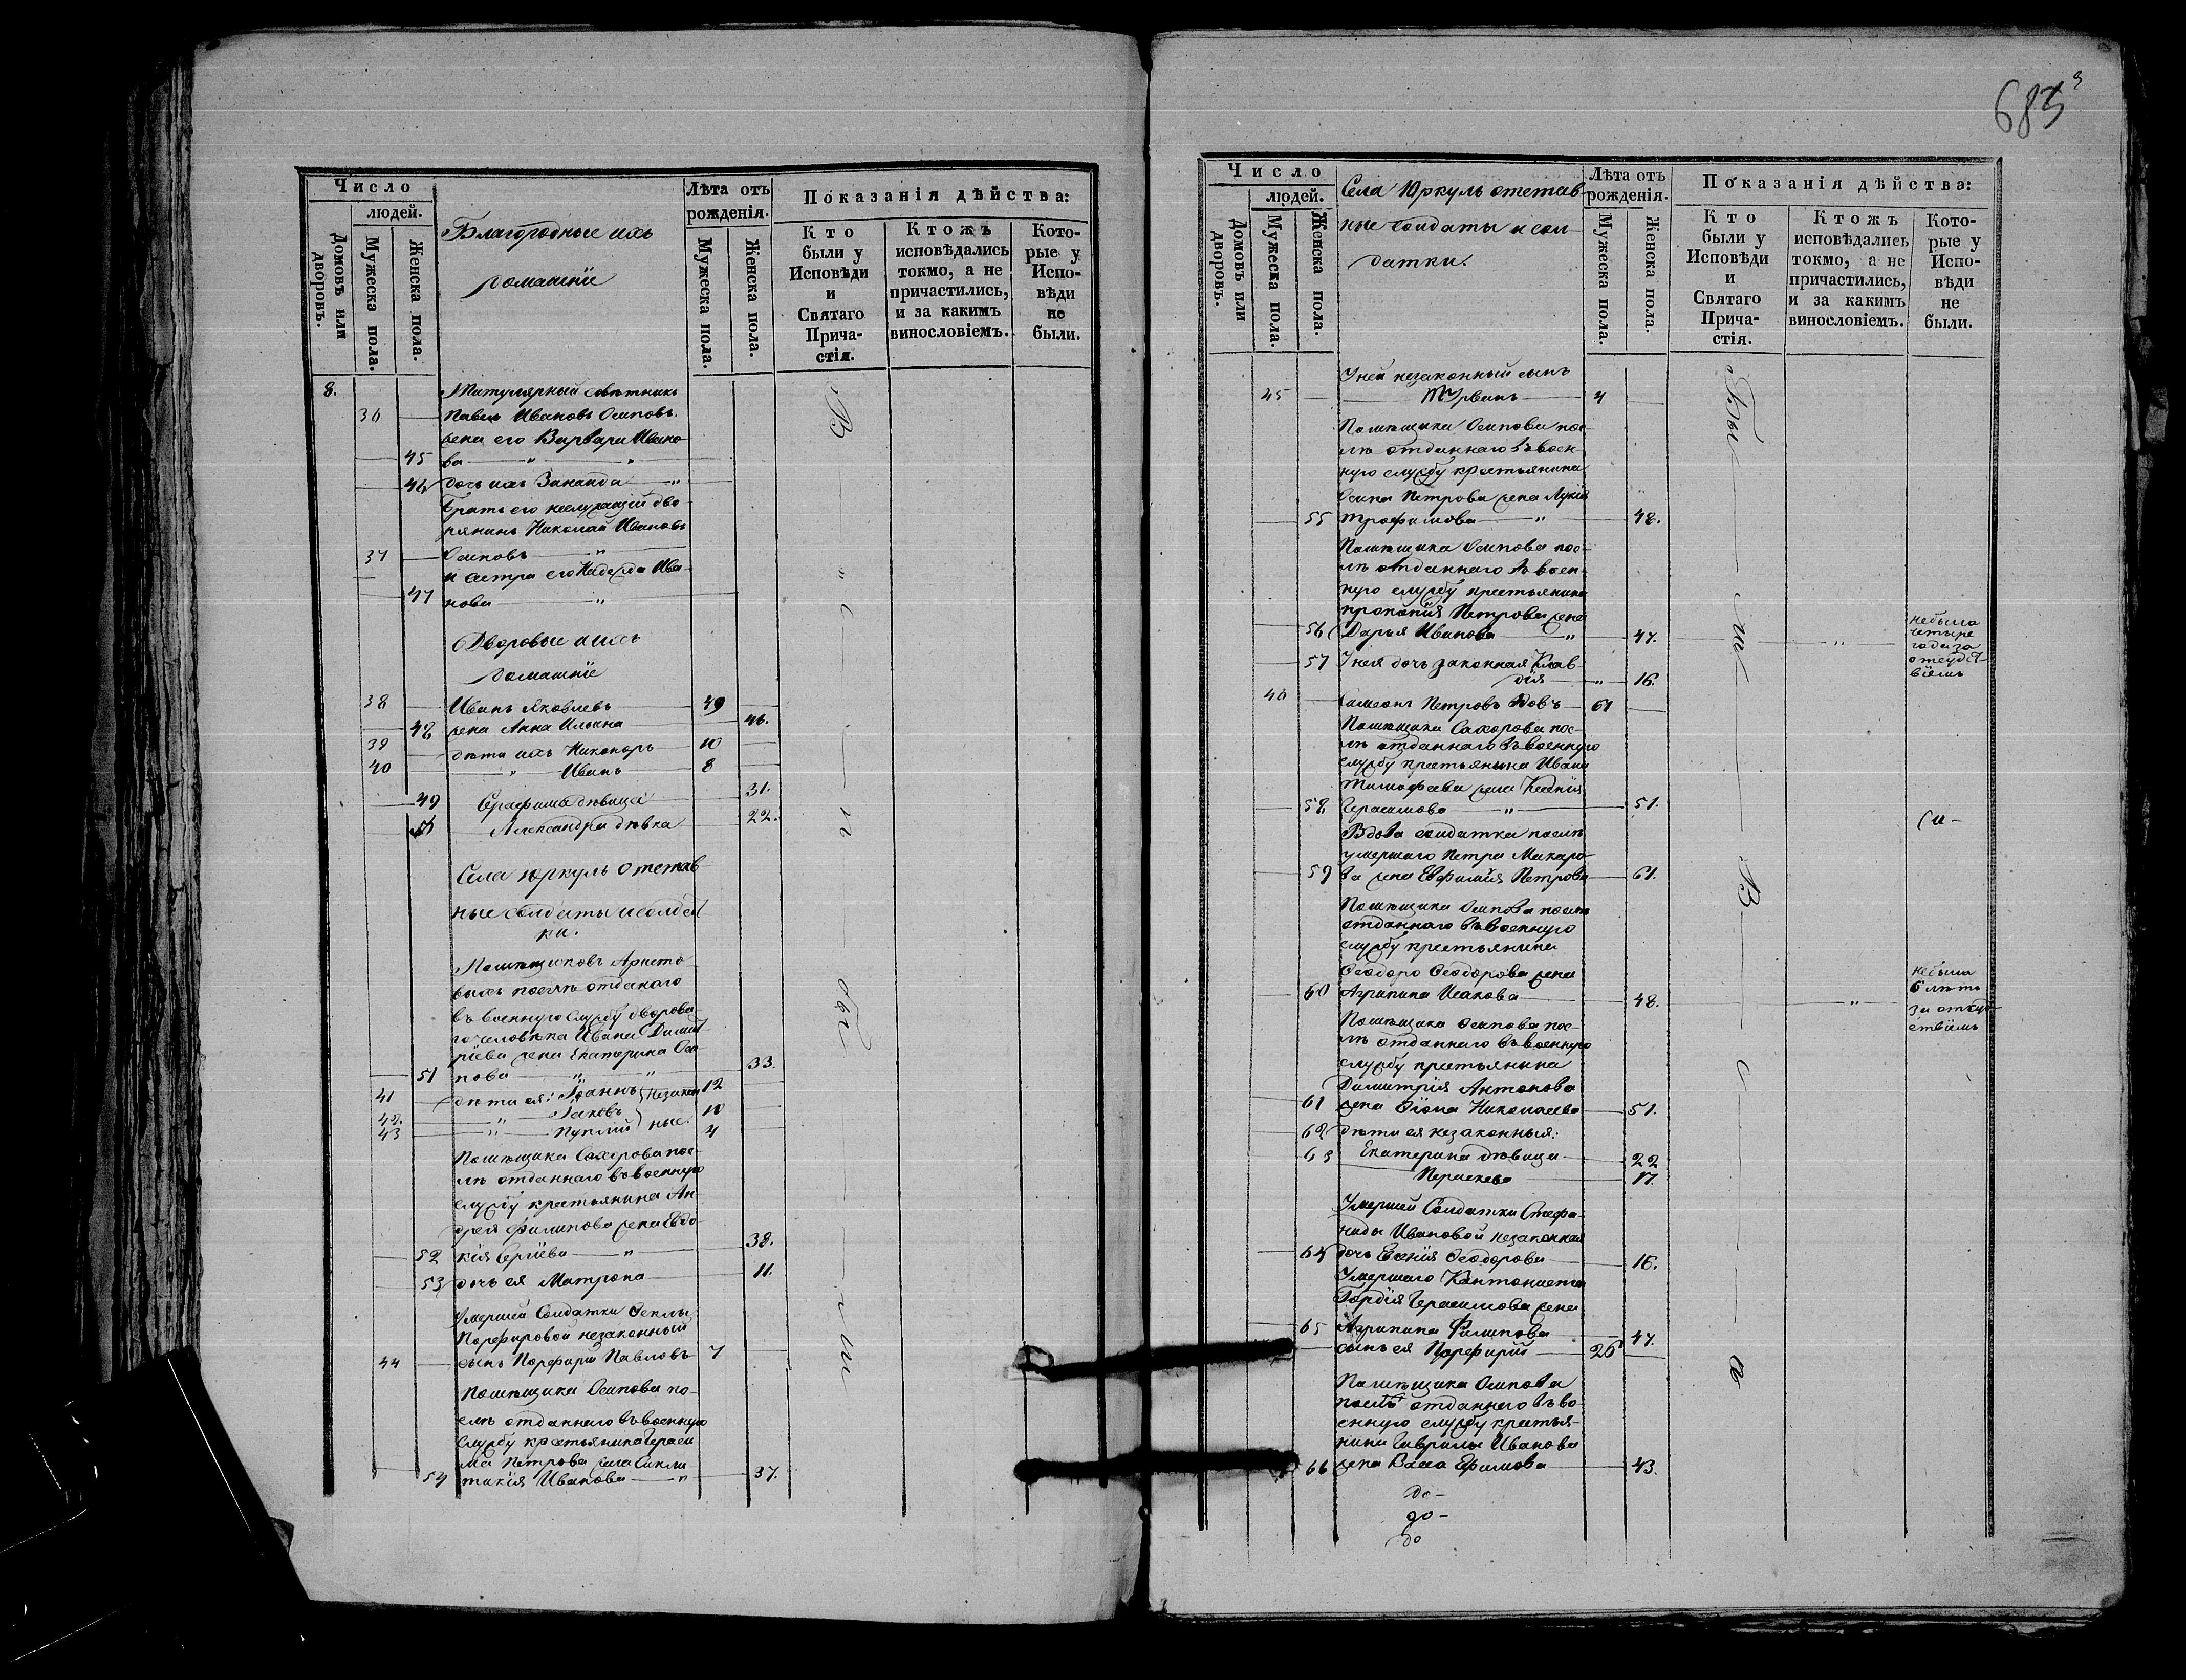 Число
людей.
Домовъ или дворовъ.
Мужеска пола.
Женска пола.
Благородные ихъ
домашніе
Лѣта отъ
рожденія.
Мужеска пола.
Женска пола.
Показанія дѣйства:
Кто
были у
Исповѣди
и
Святаго
Прича-
стія.
Ктожъ
исповѣдались
токмо, а не
причастились,
и за какимъ
винословіемъ.
Кото-
рые у
Испо-
вѣди
не
были.
8. Титулярный совѣтникъ
36 Павелъ Ивановъ Осиповъ.
жена его Варвара Ивано-
45 ва
46 дочь ихъ Зинаида
Братъ его неслужащій дво-
рянинъ Николай Ивановъ
37 Осиповъ
и сестра его Надежда Ива-
47 нова
Дворовые и ихъ
домашніе
38 Иванъ Яковлевъ 49
48 жена Анна Ильина 46.
39 дѣти ихъ Никоноръ 10
40 Иванъ 8
49 Серафима дѣвица 31.
50 Александра дѣвка 22.
Села Юркуль отстав-
ные солдаты и солдат
ки.
Помѣщиковъ Аристо-
выхъ послѣ отданаго
въ военную службу дворова-
го человѣка Ивана Димит
ріева жена Екатерина Оси-
51 пова 33.
41 дѣти ея: Іоаннъ незакон 12
42. Іаковъ 10
43 Пуплій ные 4
Помѣщика Сахарова пос-
лѣ отданнаго въ военную
службу крестьянина Ан-
дрея Филипова жена Евдо-
52 кія Сергіева 38.
53 дочь ея Матрона 11.
Умершей Солдатки Феклы
Порфировой незаконный
44 сынъ Порфирій Павловъ 7
Помѣщика Осипова по-
слѣ отданнаго въ военную
службу крестьянина Гераси
ма Петрова жена Синкли
54 тикія Иванова 37.
683
Число
людей.
Домовъ или дворовъ.
Мужеска пола.
Женска пола.
Села Юркуль отстав-
ные солдаты и сол-
датки.
Лѣта отъ
рожденія.
Мужеска пола.
Женска пола.
Показанія дѣйства:
Кто
были у
Исповѣди
и
Святаго
Прича-
стія.
Ктожъ
исповѣдались
токмо, а не
причастились,
и за какимъ
винословіемъ.
Кото-
рые у
Испо-
вѣди
не
были.
У ней незаконный сынъ
45 4
Помѣщика Осипова пос-
лѣ отданнаго въ воен-
ную службу крестьянина
Осипа Петрова жена Лукія
55 Трофимова 48.
Помѣщика Осипова пос-
лѣ отданнаго въ воен-
ную службу крестьянина
Прокопія Петрова жена
56 Дарья Иванова 47. небыла четыре года за отсудст віемъ
57 У нея дочь законная Клав-
дія 16.
46 Симеонъ Петровъ вдовъ 61
Помѣщика Сахарова пос-
лѣ отданнаго въ военную
службу крестьянина Ивана
Тимофеева жена
58 Герасимова 51.
Вдова солдатка послѣ
умершаго Петра Макаро-
59 ва жена Евфимія Петрова 61.
Помѣщика Осипова послѣ
отданнаго въ военную
службу крестьянина
Феодора Феодорова жена
60 Агрипина Исакова 48. небыла 6 лѣтъ за отсуд- ствіемъ
Помѣщика Осипова пос-
лѣ отданнаго въ военную
службу крестьянина
Димитрія Антонова
61 жена Николаева 51.
62 дѣти ея незаконныя:
63 Екатерина дѣвица 22
Параскева 17.
Умершей Солдатки Стефа-
ниды Ивановой незаконная
64 дочь Феодорова 16.
Умершаго Кантониста
Гордія Герасимова жена
65 Агрипина Филипова 47.
сынъ ея Порфирій 26
Помѣщика Осипова
послѣ отданнаго въ во-
енную службу крестья-
нина Гаврилы Иванова
66 жена Васса Ефимова 43.
до-
до-
до